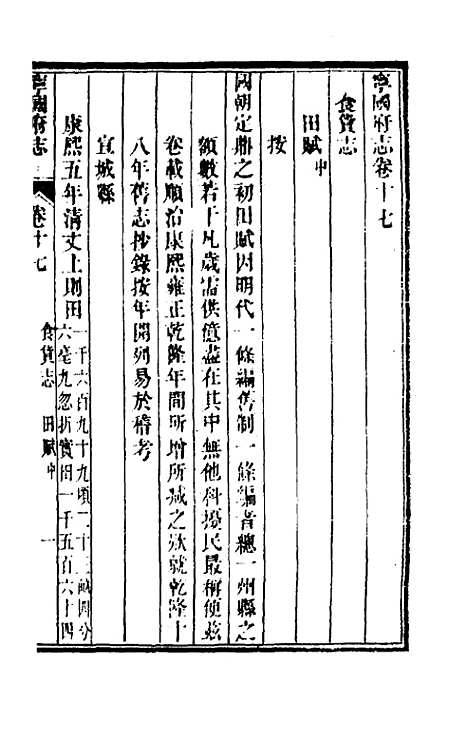 寧國府志卷十七
食貨志
田賦中
按
國朝定鼎之初田賦因明代一條編舊制一條編者總一州縣之
額數若干凡歲需供億盡在其中無他科擾民最稱便茲
卷載順治康熙雍正乾隆年間所增所減之欵就乾隆十
八年舊志抄錄按年開列易於稽考
宣城縣
康熙五年清丈上則田一千六百九十九頃二十三畝四分
六毫九忽折實田一千五百六十四
寧國府志 卷十七 食貨志 田賦中 一